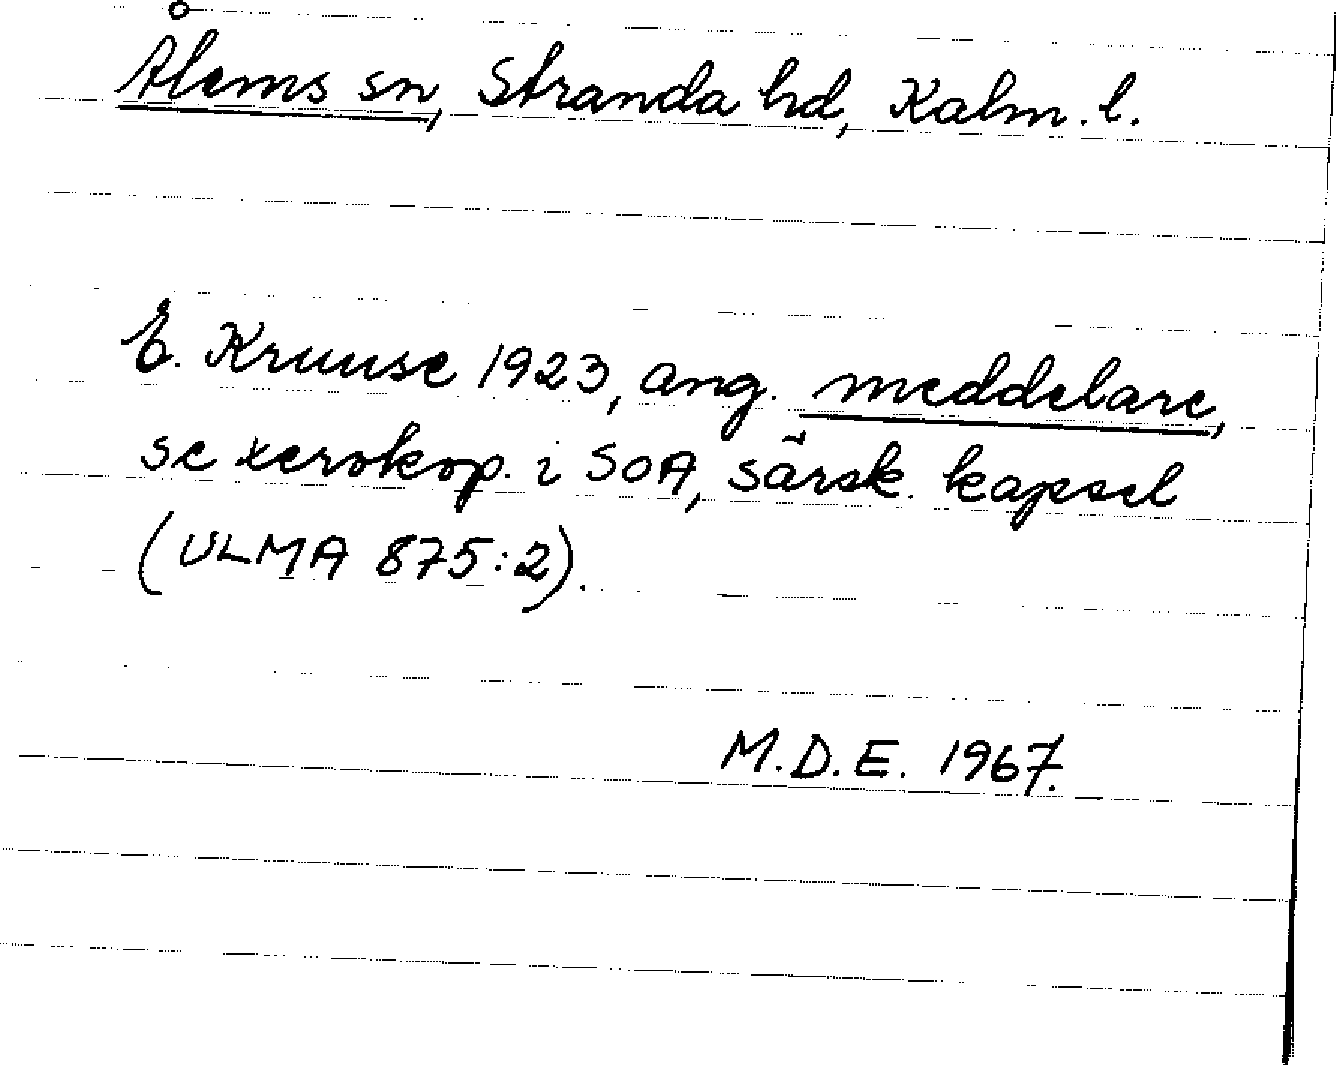 Ålems sn, Stranda hd, Kalm. l.
E. Kruuse 1923, ang. meddelare,
se xerokop. i SOA, särsk. kapsel
(ULMA 875:2).
M.D.E. 1967.